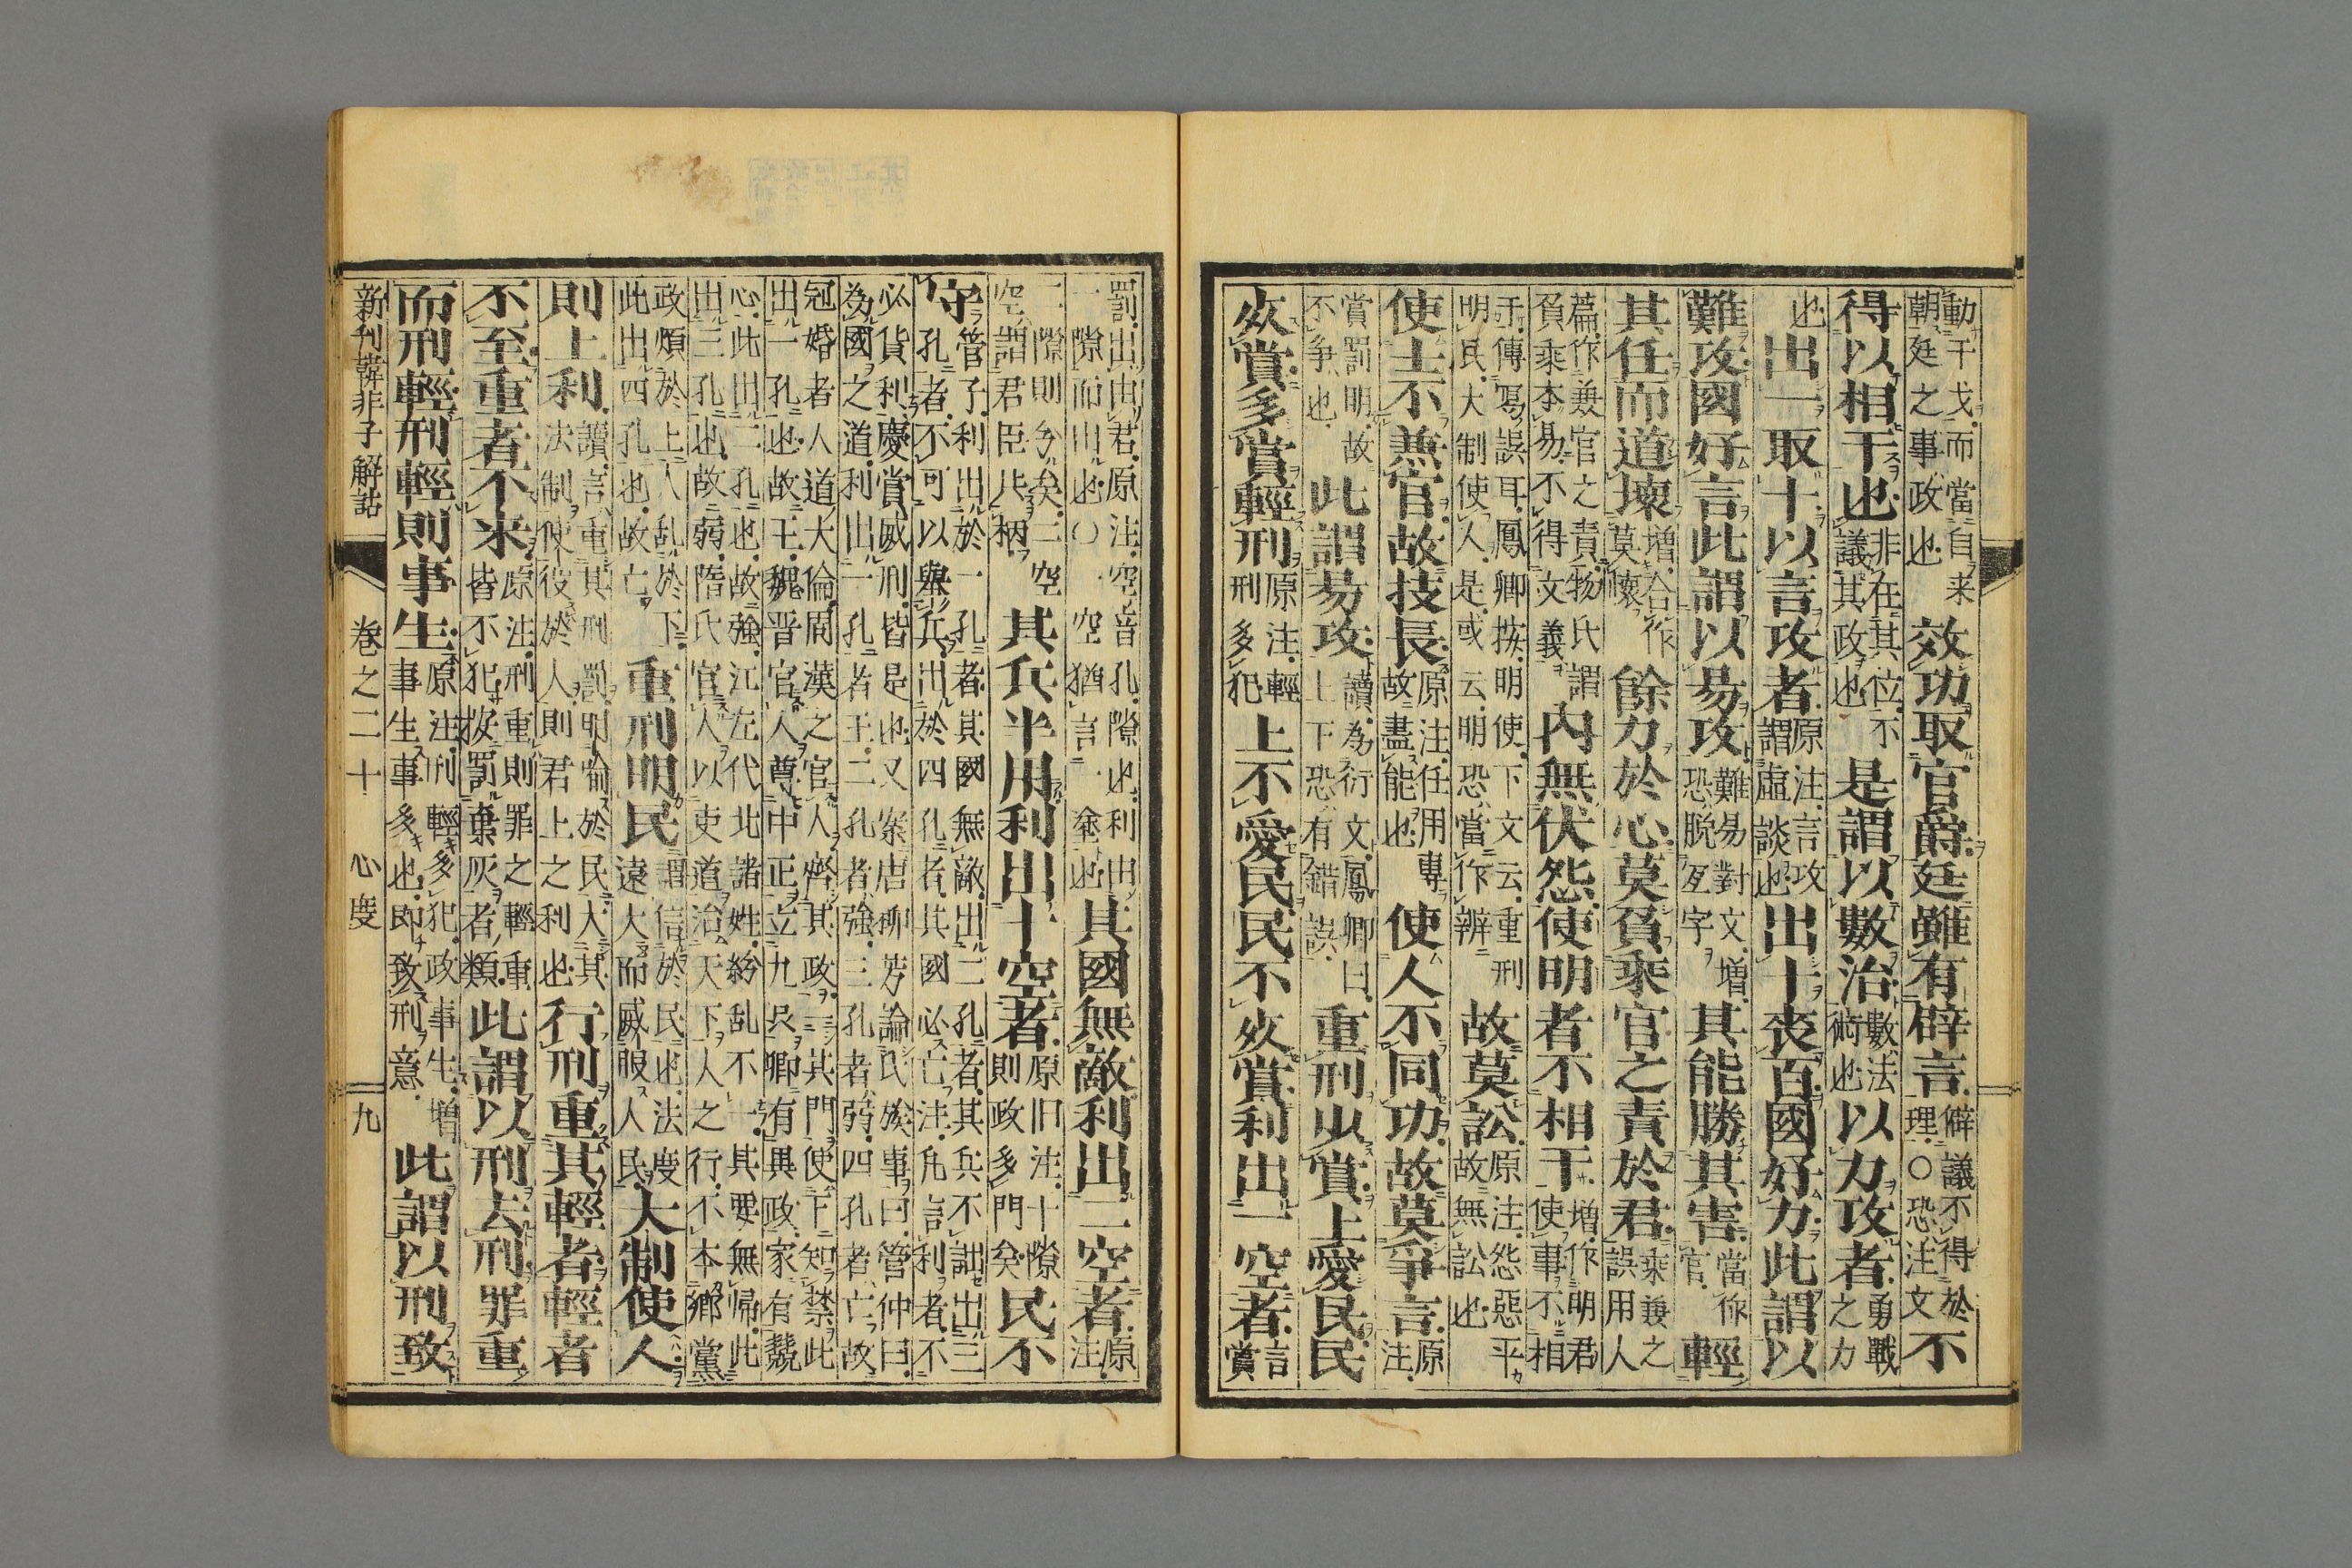 動干戈而當自来朝廷之事政也效功取官爵廷雖有辟言僻議不得於理○恐注文不
得以相干也非在其位不議其政也是謂以數治數法術也以力攻者勇戰之力
也出一取十以言攻者原注言攻謂虛談也出十喪百國好力此謂以
難攻國好言此謂以易攻難易對文増恐脱字其能勝其害當作官輕
其任而道壞増合作莫懷餘力於心莫負乘官之責於君乘兼之誤用人
篇作兼官之責物氏謂負乘本易不得文義内無伏怨使明者不相干増作明君使事不相
干傳寫誤耳鳳卿按明使下文云重刑明民大制使人是或云明恐當作辨故莫訟原注怨惡平故無訟也
使士不兼官故技長原注任用專故盡能也使人不同功故莫爭言原注
賞罰明故不争也此謂易攻讀為衍文鳳卿曰上下恐有錯誤重刑少賞上愛民民
死賞多賞輕刑原注輕刑多犯上不愛民民不死賞利出一空者言賞
罰出由君原注空音孔隙也利由一隙而出也○一空猶言一途也其國無敵利出二空者原注
二隙則分矣二空空謂君臣共柄其兵半用利出十空者原旧注十隙則政多門矣民不
守管子利出於一孔者其國無敵出二孔者其兵不詘出三孔者不可以舉兵出於四孔者其國必亡注凡言利者不
必貨利慶賞威刑皆是也又案唐柳芳論氏族事曰管仲曰為國之道利出一孔者王二孔者強三孔者弱四孔者亡故
冠婚者人道大倫周漢之官人齊其政一其門使下知禁此出一孔也故王魏晋官人尊中正立九品卿有異政家有競
心此出二孔也故強江左代北諸姓紛乱不一其要無帰此出三孔也故弱隋氏官人以吏道治天下人之行不本鄉黨
政煩於上人乱於下此出四孔也故亡重刑明民謂信於民也法度遠大而威服人民大制使人
則上利讀言重其刑罰明喻於民大其法制使役於人則君上之利也行刑重其輕者輕者
不至重者不来原注刑重則罪之輕重皆不犯按罰棄灰者類此謂以刑去刑罪重
而刑輕刑輕則事生原注刑輕多犯政事生増事生事多也即致刑意此謂以刑致
新刊韓非子解詁 卷之二十 心度 九